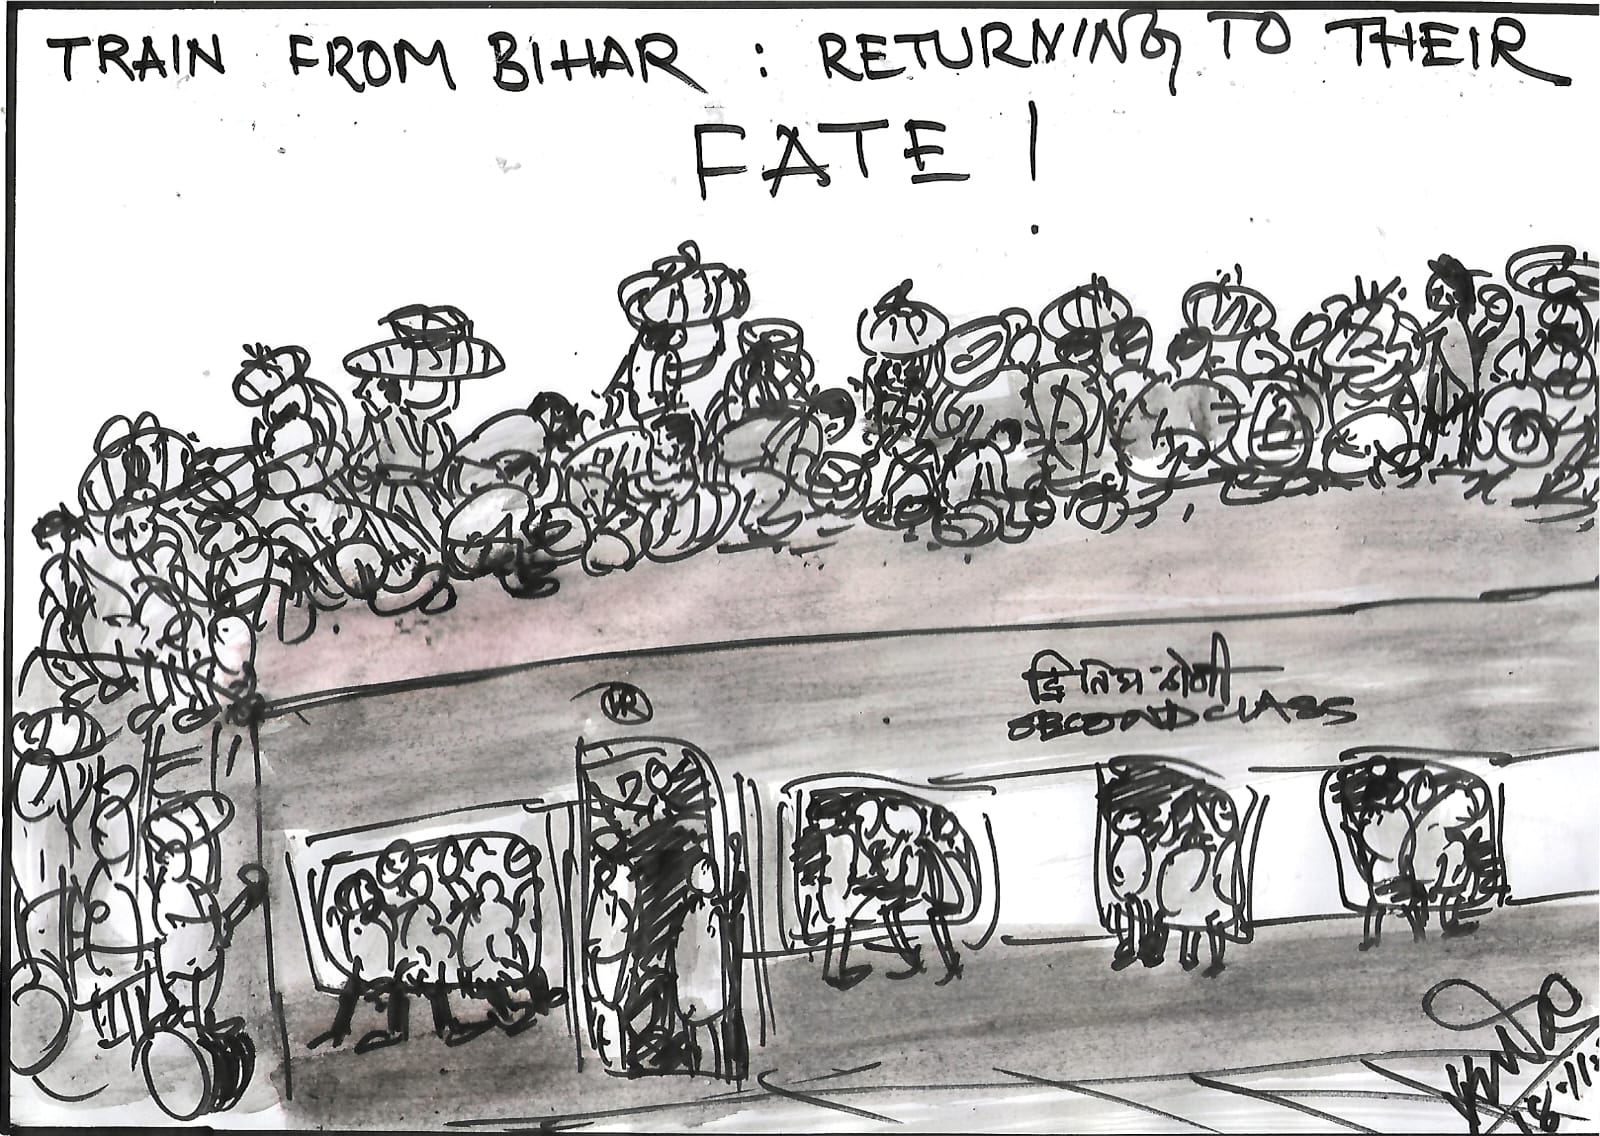 TRAIN FROM BIHAR : RETURNING TO THEIR
FATE !
SECOND CLASS